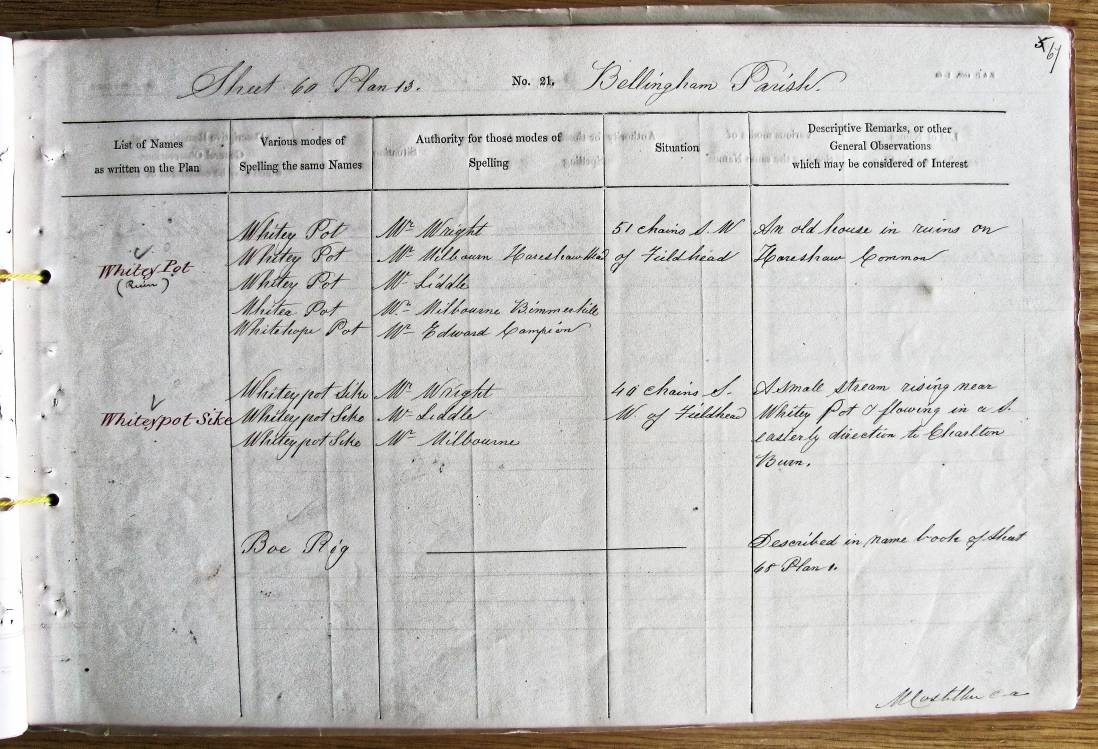 61
Sheet 60 Plan 13. No. 21. Bellingham Parish.
List of Names as written on the Plan
Various modes of Spelling the same Names
Authority for those modes of Spelling
Situation
Descriptive Remarks, or other General Observations which may be considered of Interest
Whitey Pot
(Ruin)
Whitey Pot Mr Wright 51 chains S. W An old house in ruins on
Whitey Pot Mr Milbourn Hareshaw Head of Fieldhead Hareshaw Common
Whitey Pot Mr Liddle
Whitea Pot Mr Milbourne Bimmerhill
Whitehope Pot Mr Edward Campion
Whiteypot Sike
Whiteypot Sike Mr Wright 40 chains S. A small stream rising near
Whiteypot Sike Mr Liddle W. of Fieldhead Whitey Pot & flowing in a S.
Whiteypot Sike Mr Milbourne easterly direction to Charlton
Burn.
Boe Rig Described in name book of Sheet
68 Plan 1.